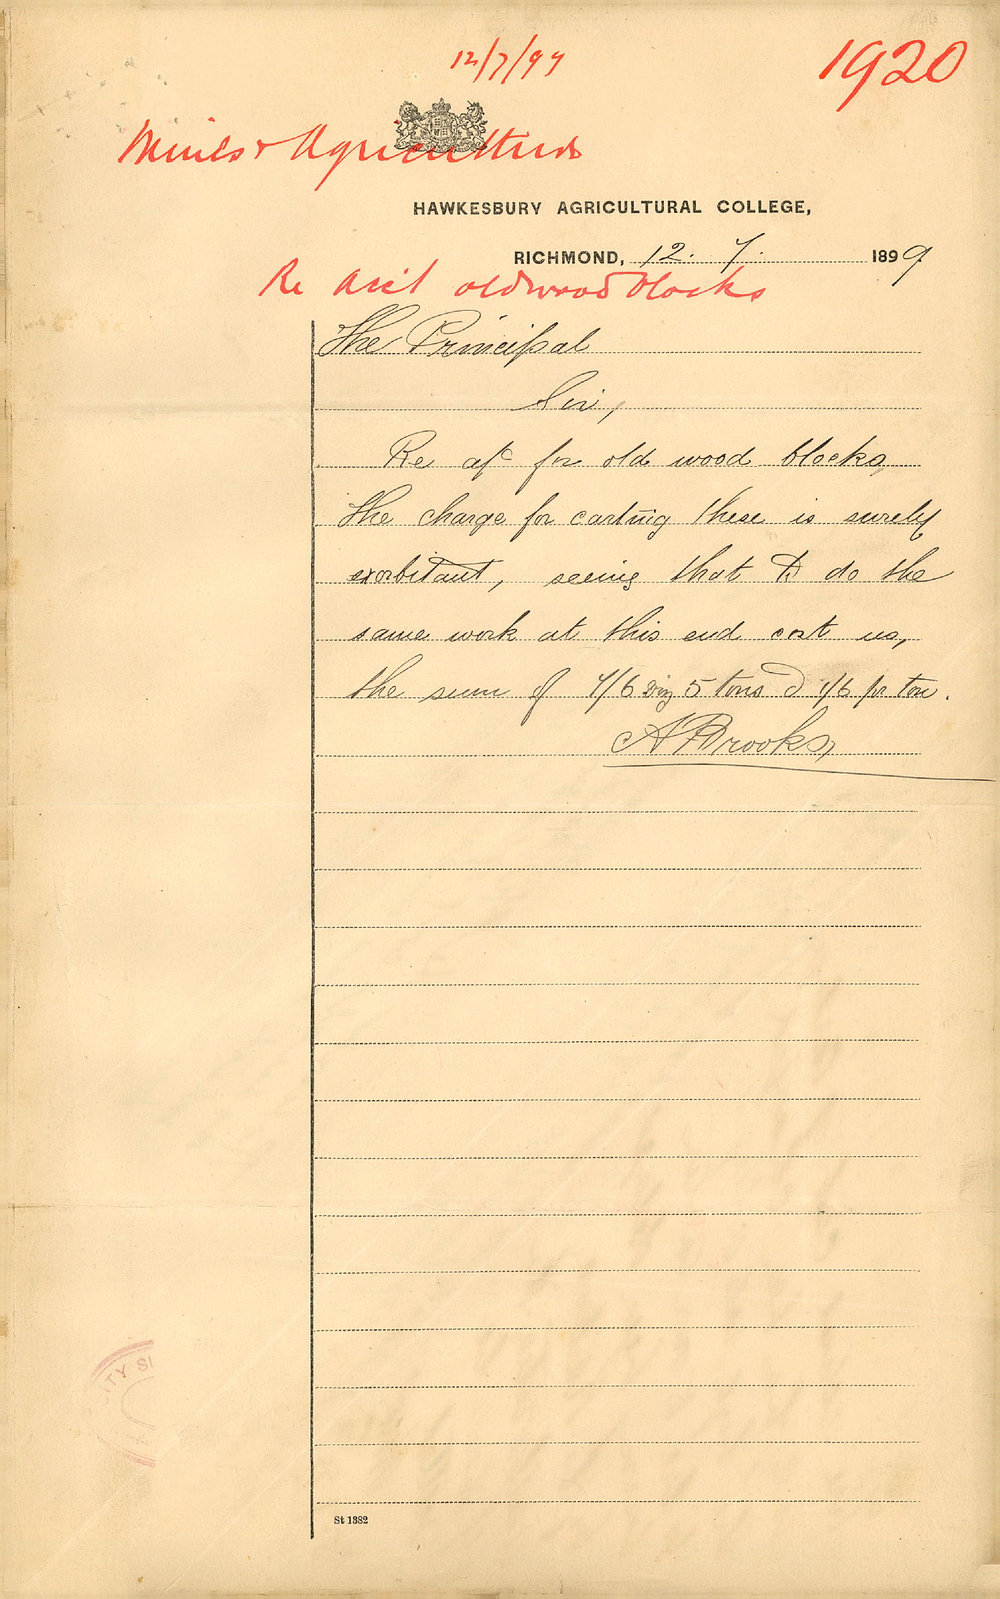 12/7/99
1920
Mines & Agriculture
HAWKESBURY AGRICULTURAL COLLEGE,
RICHMOND, 12. 7. 1899
Re Acct old wood blocks
The Principal
Sir,
Re a/c for old wood blocks,
the charge for carting these is surely
exorbitant, seeing that to do the
same work at this end cost us,
the sum of 7/6 5 tons @ 1/6 per ton.
A Brooks
ITY S
St 1382